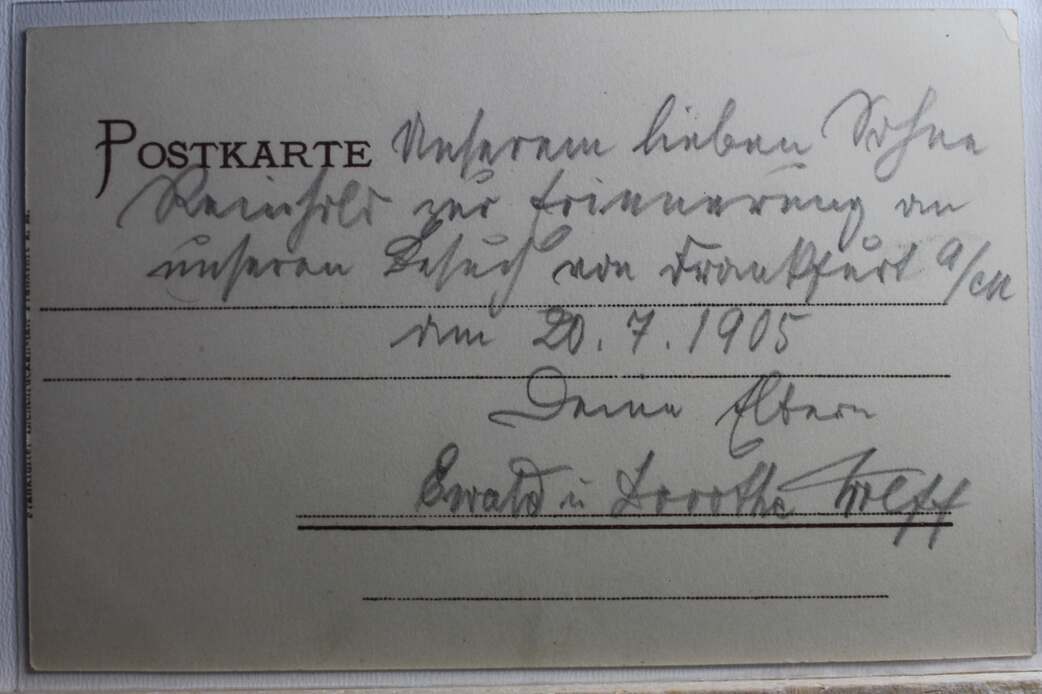 POSTKARTE Unserem lieben Sohne
Reinhold zur Erinnerung an
unseren Besuch von Frankfurt a/M
am 20.7.1905
Deine Eltern
Ewald u Dorothe Wolff